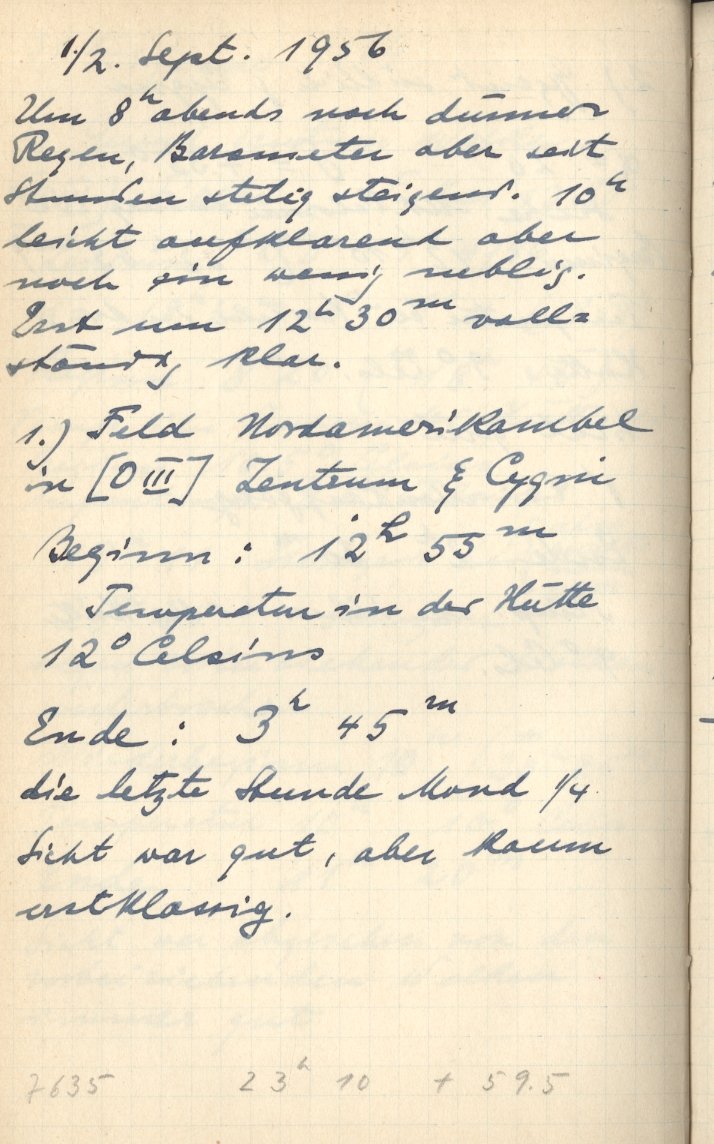 1./2. Sept. 1956
Um 8ʰ abends noch dünner
Regen, Barometer aber seit
Stunden stetig steigend. 10ʰ
leicht aufklarend aber
noch ein wenig neblig.
Erst um 12ʰ 30ᵐ voll=
ständig klar.
1.) Feld Nordamerikanebel
in [O III] Zentrum ξ Cygni
Beginn : 12ʰ 55ᵐ
Temperatur in der Hütte
12° Celsius
Ende : 3ʰ 45ᵐ
die letzte Stunde Mond 1/4
Sicht war gut, aber kaum
erstklassig.
7635 23ʰ 10 + 59.5